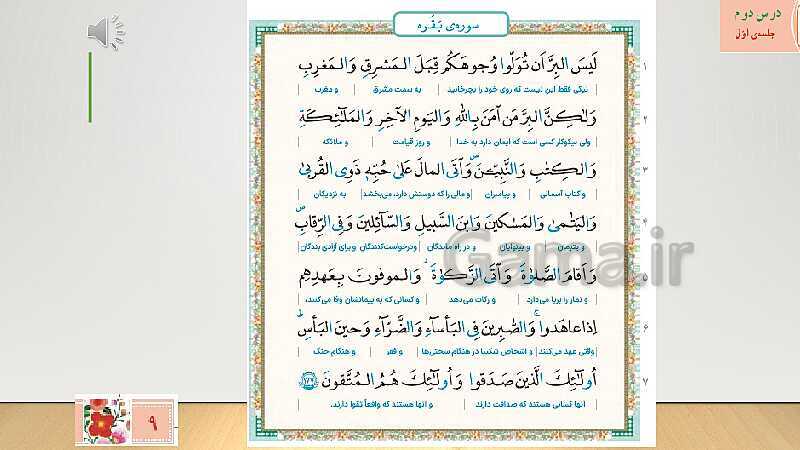 درس دوم
جلسه‌ی اوّل
سوره‌ی بَقَره
۱ لَيسَ البِرَّ اَن تُوَلّوا وُجوهَكُم قِبَلَ المَشرِقِ وَ المَغرِبِ
نیکی فقط این نیست که روی خود را بچرخانید به سمت مشرق و مغرب
۲ وَلٰكِنَّ البِرَّ مَن آمَنَ بِاللهِ وَ اليَومِ الآخِرِ وَ المَلٰئِكَةِ
ولی نیکوکار کسی است که ایمان دارد به خدا و روز قیامت و ملائکه
۳ وَ الكِتٰبِ وَ النَّبِيّٖنَ وَ آتَى المالَ عَلىٰ حُبِّهٖ ذَوِى القُربىٰ
و کتاب آسمانی و پیامبران و مالی را که دوستش دارد، می‌بخشد به نزدیکان
۴ وَ اليَتٰمىٰ وَ المَسٰكينَ وَ ابنَ السَّبيلِ وَ السّآئِلينَ وَ فِى الرِّقابِ
و یتیمان و بینوایان و در راه ماندگان و درخواست‌کنندگان و برای آزادی بندگان
۵ وَ اَقامَ الصَّلوٰةَ وَ آتَى الزَّكوٰةَ وَ الموفونَ بِعَهدِهِم
و نماز را برپا می‌دارد و زکات می‌دهد و کسانی که به پیمانشان وفا می‌کنند،
۶ اِذا عاهَدوا وَ الصّٰبِرينَ فِى البَأساءِ وَ الضَّرّآءِ وَ حينَ البَأسِ
وقتی عهد می‌کنند و اشخاص شکیبا در هنگام سختی‌ها و فقر و هنگام جنگ
۷ اُولٰئِكَ الَّذينَ صَدَقوا وَ اُولٰئِكَ هُمُ المُتَّقونَ ۱۷۷
آنها کسانی هستند که صداقت دارند و آنها هستند که واقعاً تقوا دارند.
Gama.ir
۹